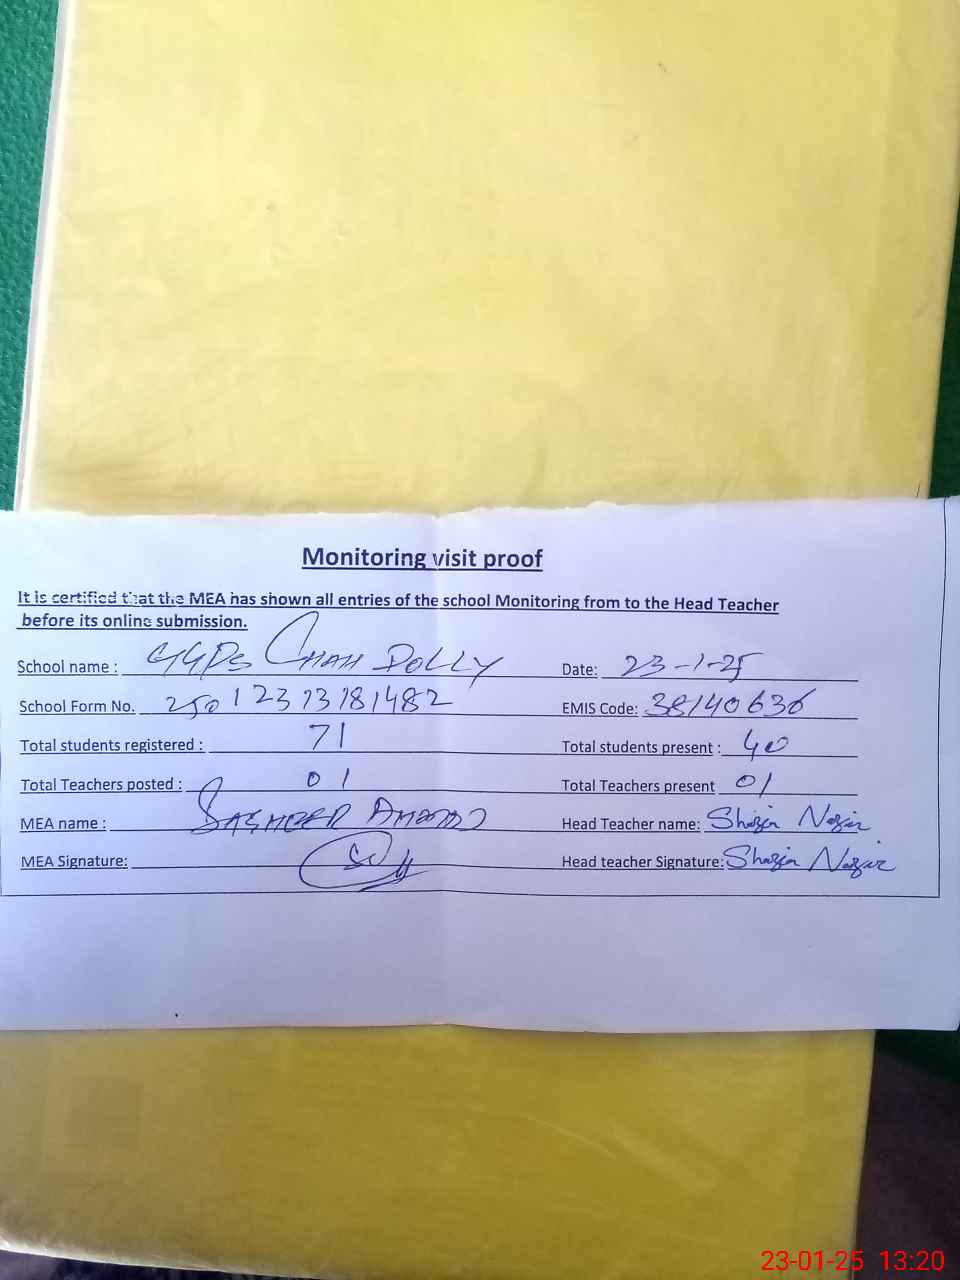 Monitoring visit proof
It is certified that the MEA has shown all entries of the school Monitoring from to the Head Teacher
before its online submission.
School name : GGPS CHAH DOLLY Date: 23-1-25
School Form No. 250123131 81482 EMIS Code: 38140636
Total students registered : 71 Total students present : 40
Total Teachers posted : 01 Total Teachers present 01
MEA name : Head Teacher name: Shazia Nazir
MEA Signature: Head teacher Signature: Shazia Nazir
23-01-25 13:20